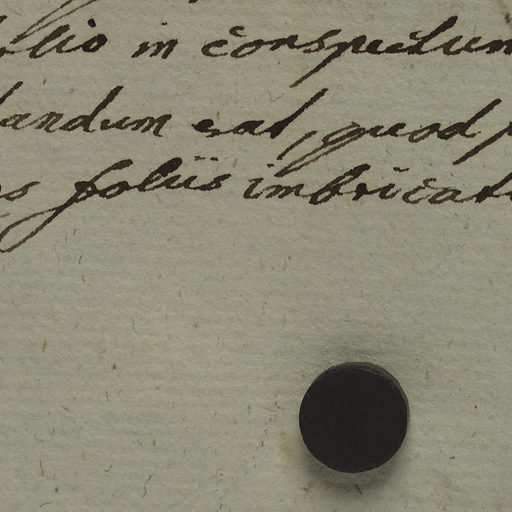 olio in conspectum
landum est, quod
foliis imbricat